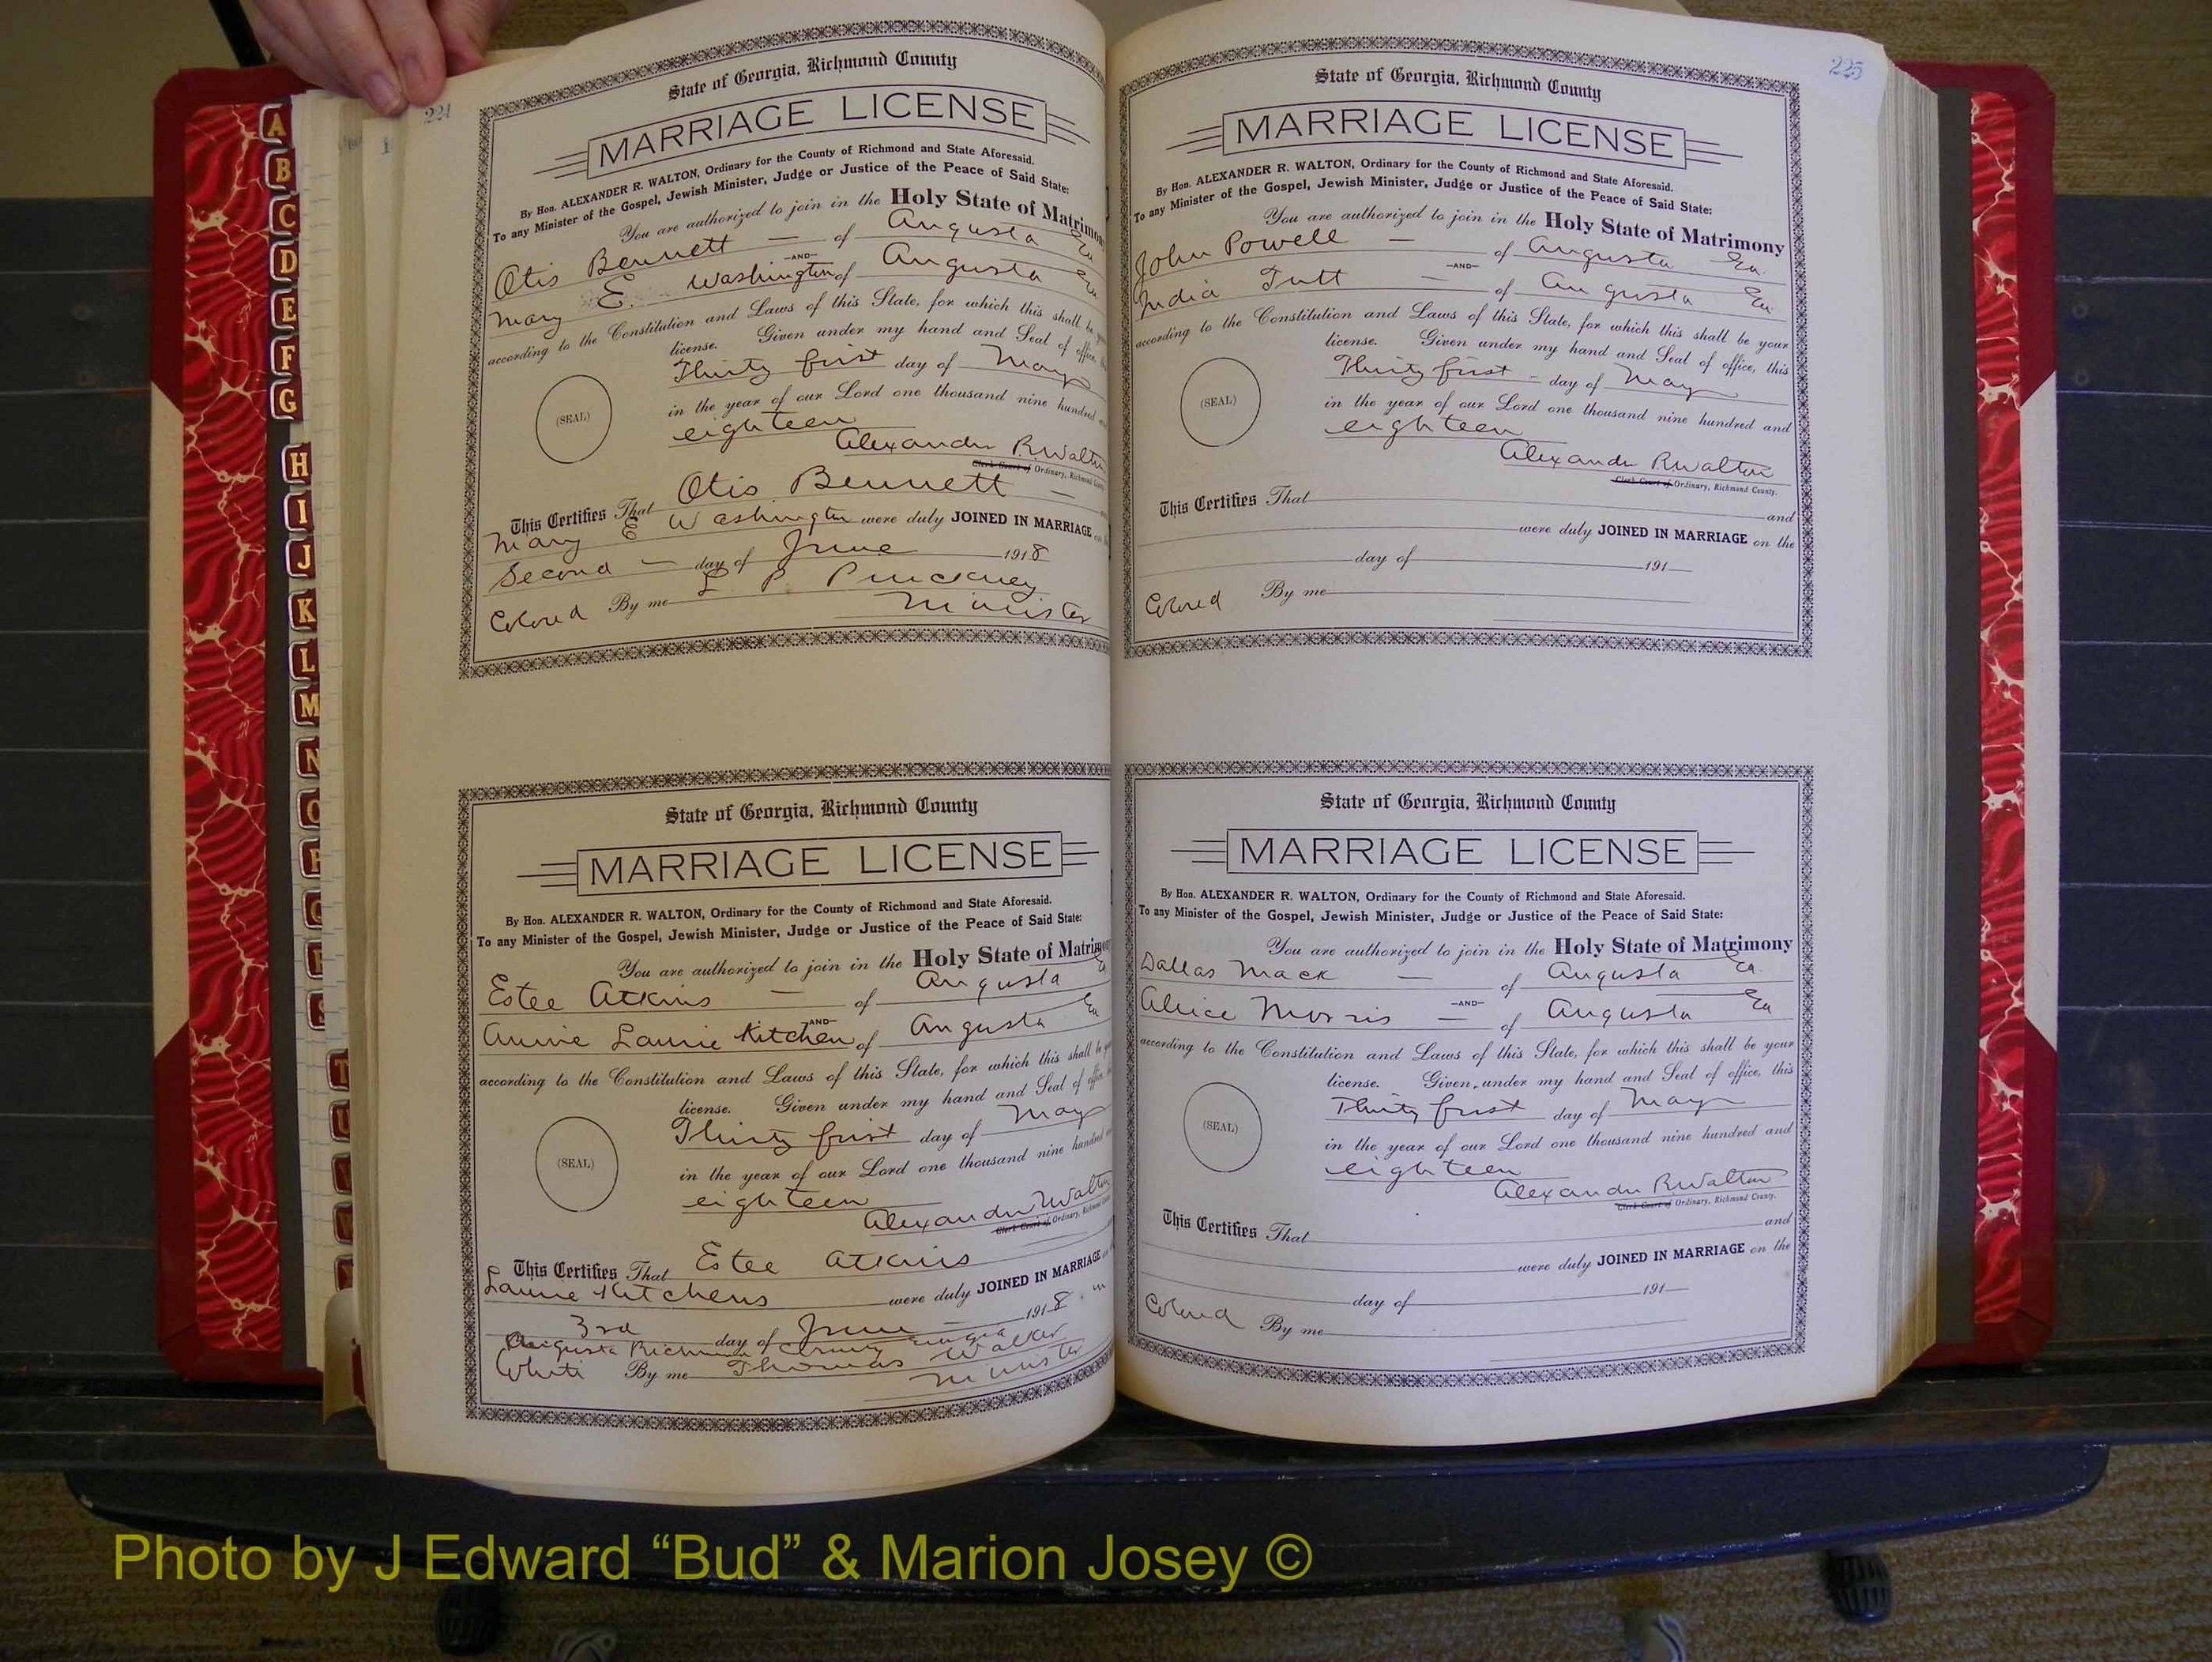 A
B
C
D
E
F
G
H
I
J
K
L
M
N
O
P
Q
R
S
T
U
V
W
224
State of Georgia, Richmond County
MARRIAGE LICENSE
By Hon. ALEXANDER R. WALTON, Ordinary for the County of Richmond and State Aforesaid.
To any Minister of the Gospel, Jewish Minister, Judge or Justice of the Peace of Said State:
You are authorized to join in the Holy State of Matrimony
Otis Bennett — of Augusta Ga
—AND—
Mary E. Washington of Augusta Ga
according to the Constitution and Laws of this State, for which this shall be your
license. Given under my hand and Seal of office, this
(SEAL)
Thirty first day of May
in the year of our Lord one thousand nine hundred and
eighteen
Alexander R. Walton
Clerk Court of Ordinary, Richmond County.
This Certifies That Otis Bennett —
Mary E Washington were duly JOINED IN MARRIAGE on the
Second — day of June 1918
Colored By me L P Pinckney
Minister
State of Georgia, Richmond County
MARRIAGE LICENSE
By Hon. ALEXANDER R. WALTON, Ordinary for the County of Richmond and State Aforesaid.
To any Minister of the Gospel, Jewish Minister, Judge or Justice of the Peace of Said State:
You are authorized to join in the Holy State of Matrimony
Estee Atkins — of Augusta Ga
—AND—
Annie Laurie Kitchen of Augusta Ga
according to the Constitution and Laws of this State, for which this shall be your
license. Given under my hand and Seal of office, this
(SEAL)
Thirty first day of May
in the year of our Lord one thousand nine hundred and
eighteen
Alexander R Walton
Clerk Court of Ordinary, Richmond County.
This Certifies That Estee Atkins
Laurie Kitchens were duly JOINED IN MARRIAGE on
3rd day of June — 1918 in
Augusta Richmond County Georgia
White By me Thomas Walker
Minister
225
State of Georgia, Richmond County
MARRIAGE LICENSE
By Hon. ALEXANDER R. WALTON, Ordinary for the County of Richmond and State Aforesaid.
To any Minister of the Gospel, Jewish Minister, Judge or Justice of the Peace of Said State:
You are authorized to join in the Holy State of Matrimony
John Powell — of Augusta Ga.
—AND—
India Tutt — of Augusta Ga.
according to the Constitution and Laws of this State, for which this shall be your
license. Given under my hand and Seal of office, this
(SEAL)
Thirty first — day of May
in the year of our Lord one thousand nine hundred and
eighteen
Alexander R Walton
Clerk Court of Ordinary, Richmond County.
This Certifies That and
were duly JOINED IN MARRIAGE on the
day of 191
Colored By me
State of Georgia, Richmond County
MARRIAGE LICENSE
By Hon. ALEXANDER R. WALTON, Ordinary for the County of Richmond and State Aforesaid.
To any Minister of the Gospel, Jewish Minister, Judge or Justice of the Peace of Said State:
You are authorized to join in the Holy State of Matrimony
Dallas Mack — of Augusta Ga.
—AND—
Alice Morris — of Augusta Ga
according to the Constitution and Laws of this State, for which this shall be your
license. Given under my hand and Seal of office, this
(SEAL)
Thirty first day of May
in the year of our Lord one thousand nine hundred and
eighteen
Alexander R Walton
Clerk Court of Ordinary, Richmond County.
This Certifies That and
were duly JOINED IN MARRIAGE on the
day of 191
Colored By me
Photo by J Edward “Bud” & Marion Josey ©